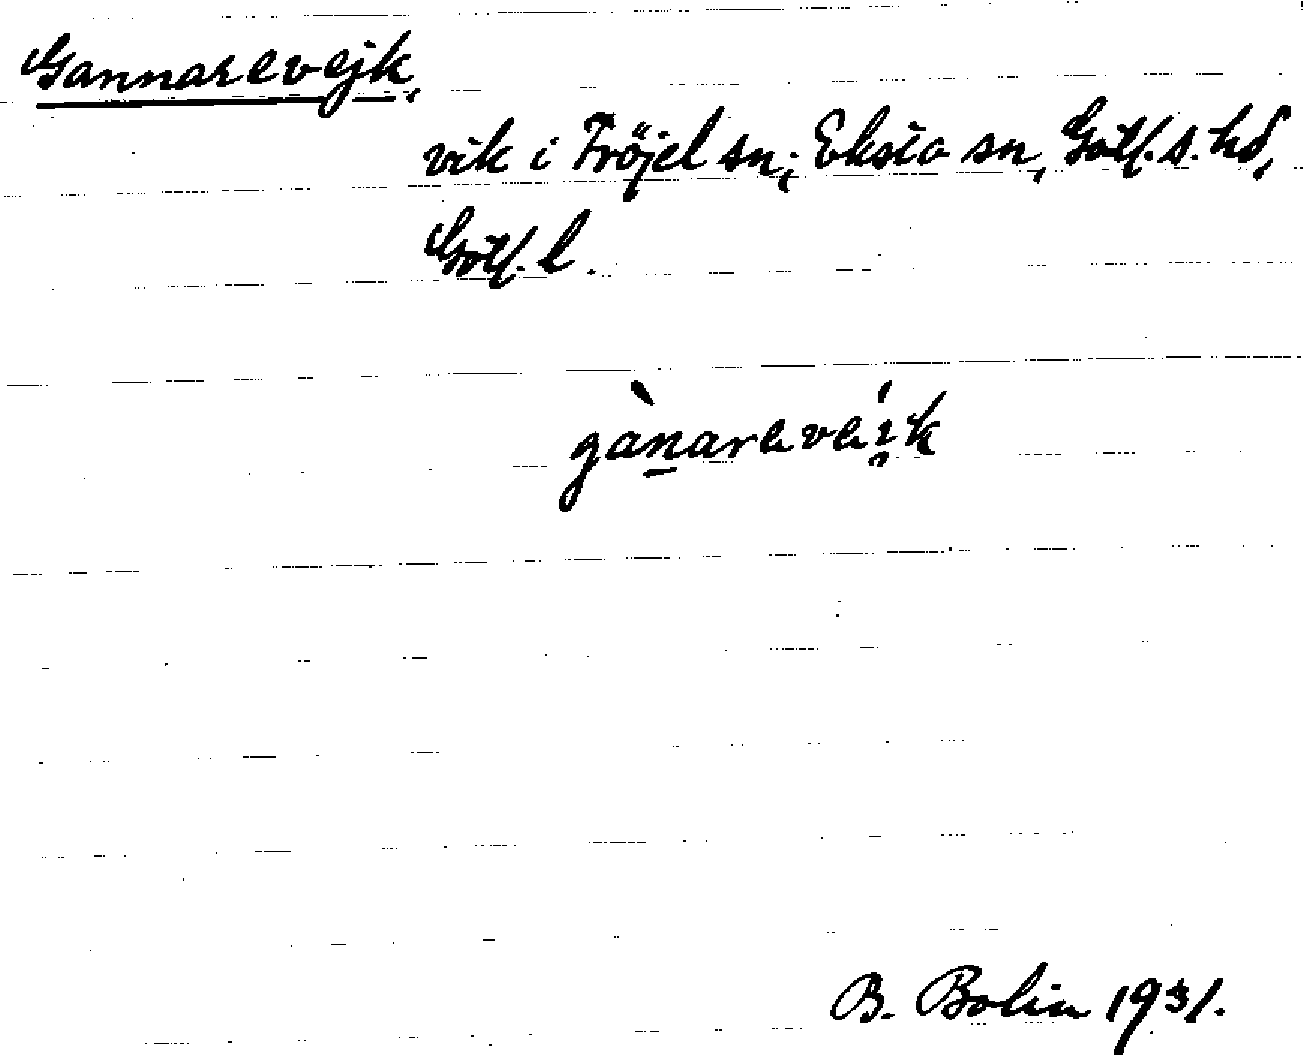 Gannarevejk,
vik i Fröjel sn; Eksta sn, Gotl. s. hd,
Gotl. l.
gànarevei̯k
B. Bolin 1931.